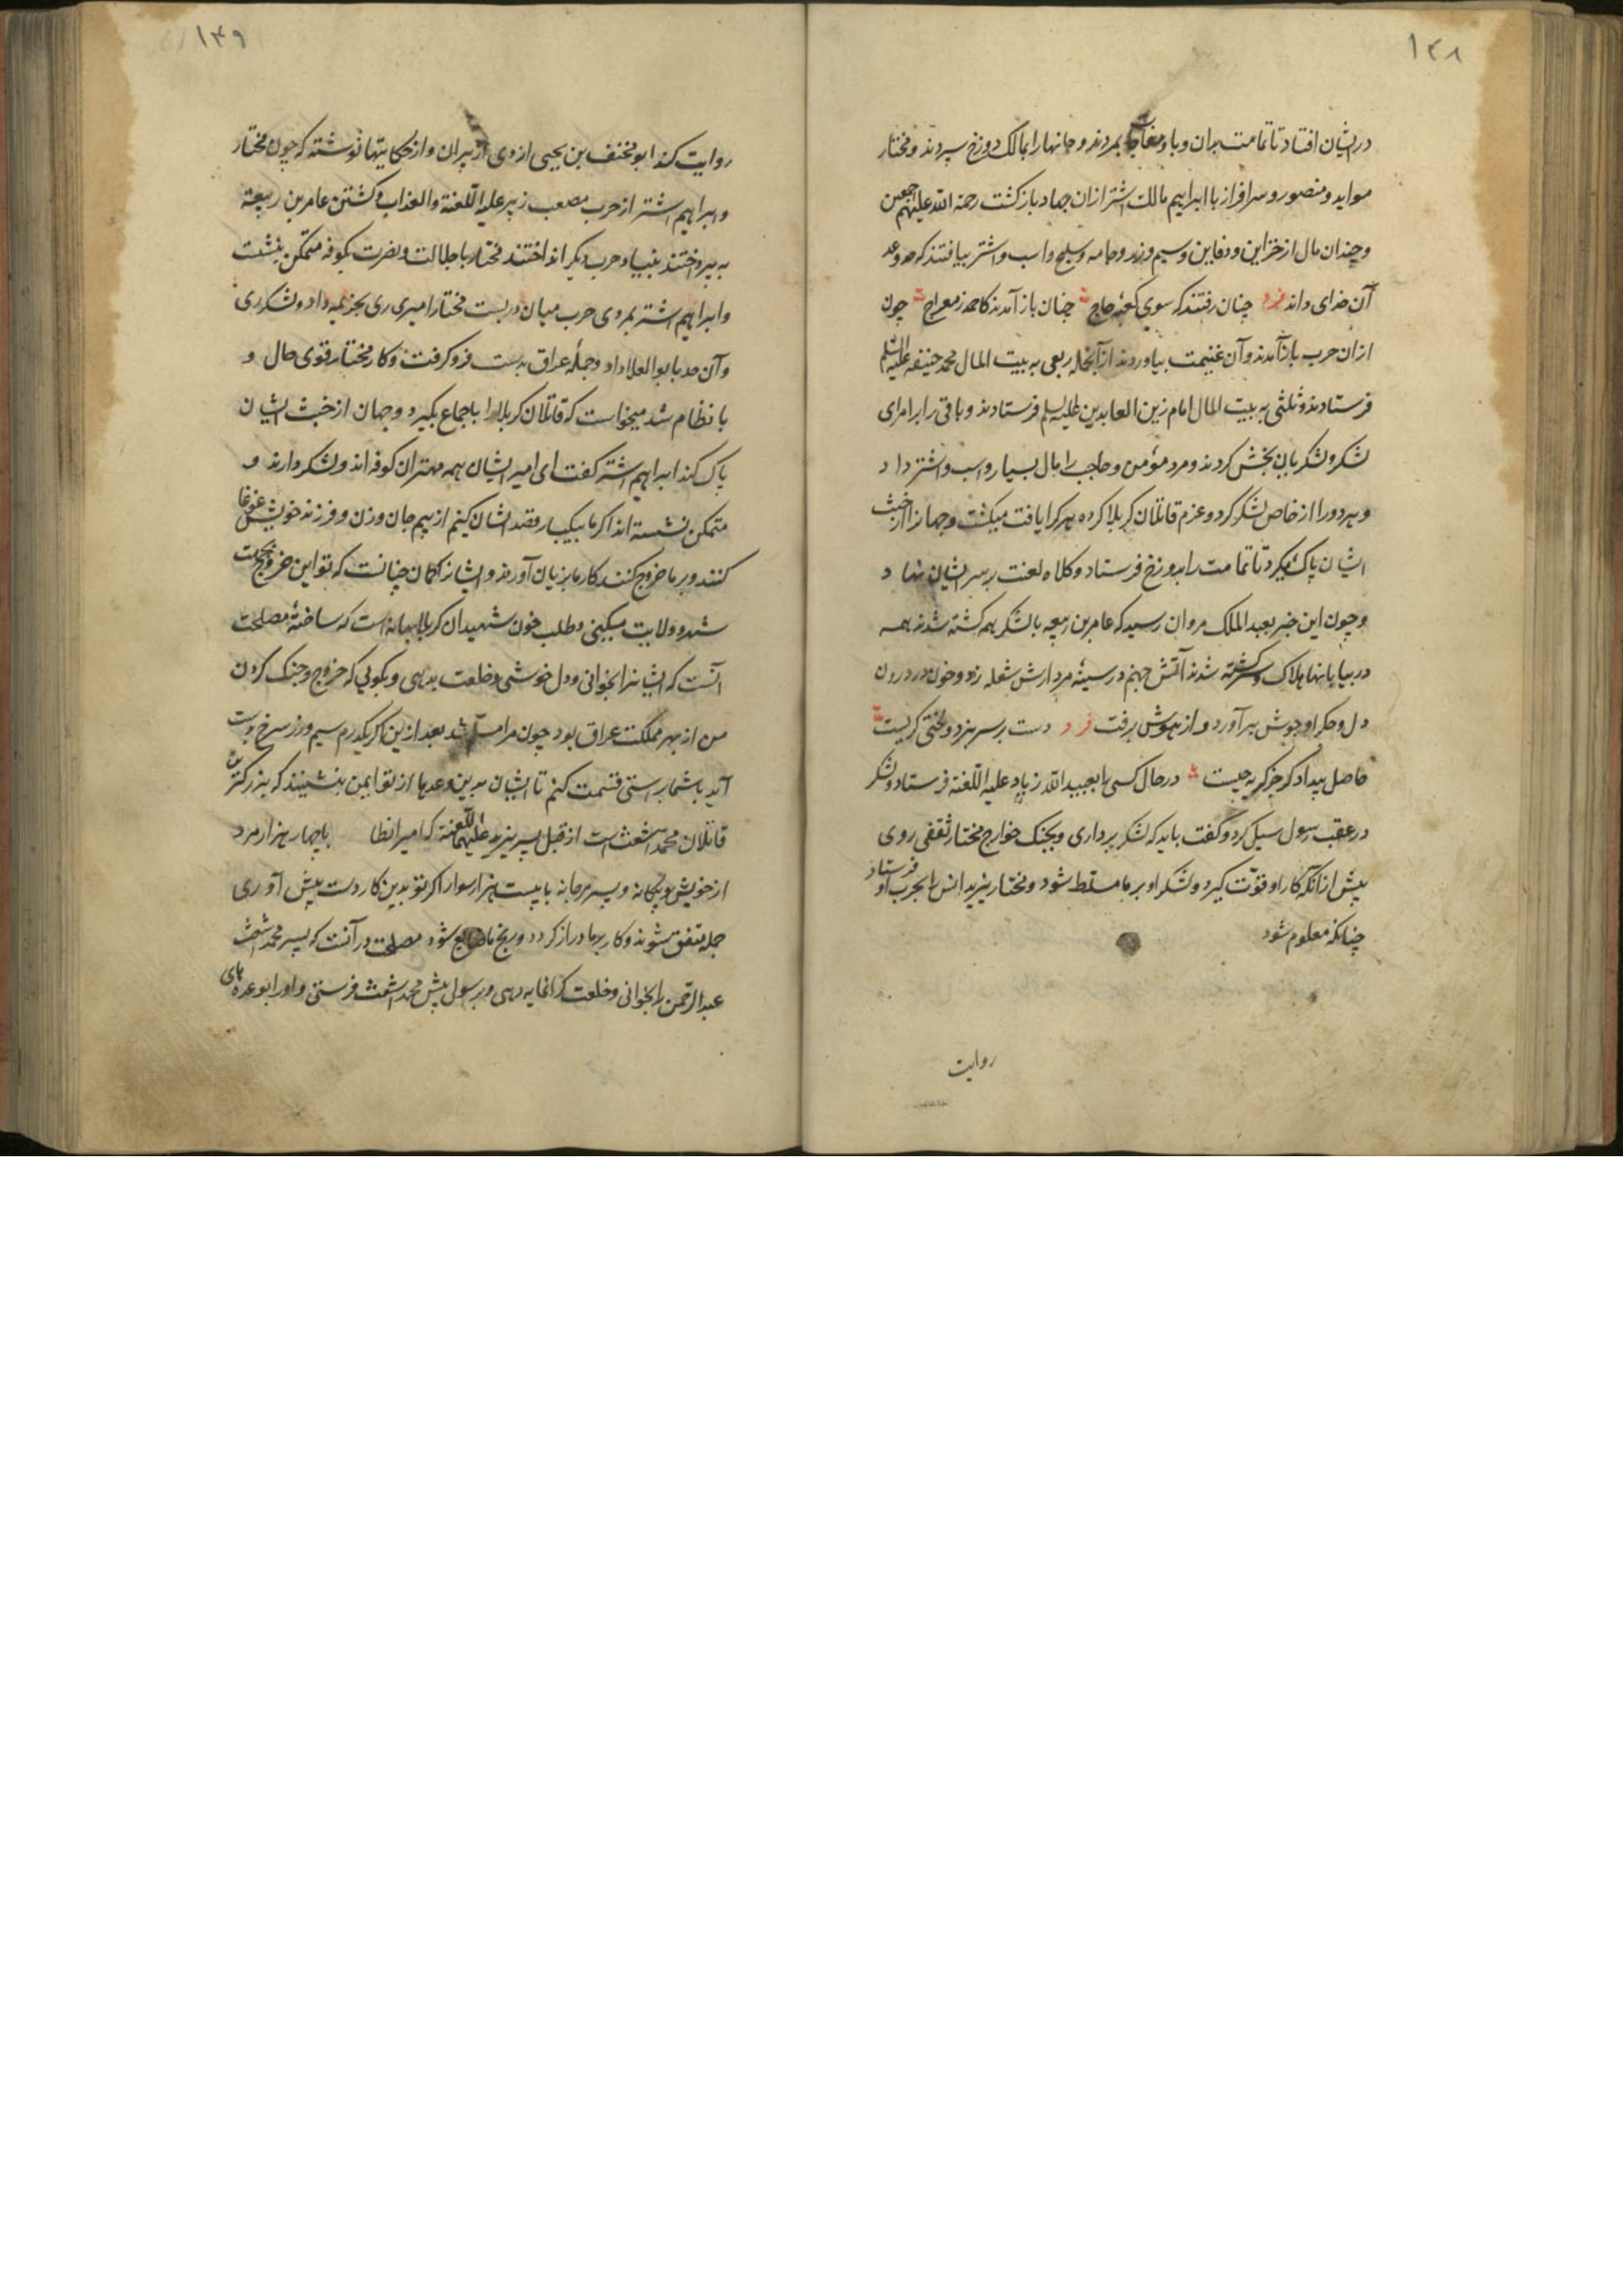 ۱۴۸
در ایشان افتاد تا تمامت بدان وبا و مفاجا بمردند و جانها را بمالک دوزخ سپردند و مختار
موید و منصور و سرافراز با ابراهیم مالک اشتر ازان جهاد بازگشت رحمة الله علیهم اجمعین
و چندان مال از خزاین و دفاین و سیم و زر و جامه و سلیح و اسب و اشتر بیافتند که حد و عد
آن خدای داند فرد چنان رفتند که سوی کعبه حاج چنان باز آمدند کاحمد ز معراج چون
ازان حرب باز آمدند و آن غنیمت بیاوردند از آنجمله ربعی به بیت المال محمد حنیفه علیه السلم
فرستادند و ثلثی به بیت المال امام زین العابدین علیه السلم فرستادند و باقی را بر امرای
لشکر و لشکریان بخش کردند و مرد مؤمن و حاجب را مال بسیار و اسب و اشتر داد
و هر دو را از خاص لشکر کرد و عزم قاتلان کربلا کرده هر کرا یافت میکشت و جهانرا از خبث
ایشان پاک میکرد تا تمامت را بدوزخ فرستاد و کلاه لعنت بر سر ایشان نهاد
و چون این خبر بعبد الملک مروان رسید که عامر بن ربیعه با لشکر همه کشته شدند همه
در بیابانها هلاک و سرگشته شدند آتش جهنم در سینهٔ مردارش شعله زد و خون در درون
دل و جگر او جوش برآورد و از هوش برفت فرد دست بر سر بزد و لختی گریست
حاصل بیدادگر جز گریه چیست در حال کسی را بعبید الله زیاد علیه اللعنة فرستاد و لشکر
در عقب رسول سیل کرد و گفت باید که لشکر برداری و بجنک خوارج مختار ثقفی روی
پیش از آنکه کار او قوّت گیرد و لشکر او بر ما مسلّط شود و مختار یزید انس را بحرب او فرستاد
چنانکه معلوم شود
روایت
۱۴۹
روایت کند ابو مخنف بن یحیی ازدی از پیران و از حکایتها نوشته که چون مختار
و ابراهیم اشتر از حرب مصعب زبیر علیه اللعنة والعذاب و کشتن عامر بن ربیعه
بپرداختند بنیاد حرب دیگر انداختند مختار با جلالت و نصرت بکوفه متمکن بنشست
و ابراهیم اشتر بمردی حرب میان در بست مختار امیری ری بخزیمه داد و لشکر ری
و آن حد با بو العلا داد و جملهٔ عراق بدست فرو گرفت و کار مختار قوی حال و
با نظام شد میخواست که قاتلان کربلا را باجماع بگیرد و جهان از خبث ایشان
پاک کند ابراهیم اشتر گفت ای امیر ایشان همه مهتران کوفه اند و لشکر دارند و
متمکن نشسته اند اگر ما بیکبار قصد ایشان کنیم از بیم جان و زن و فرزند خویش غوغا
کنند و بر ما خروج کنند کار ما بزیان آورند و ایشانرا گمان چنانست که تو این خروج بجهت
شهر و ولایت میکنی و طلب خون شهیدان کربلا بهانه است که ساختهٔ مصلحت
آنست که ایشانرا بخوانی و دل خوشی و خلعت بدهی و بگویی که خروج و جنک کردن
من از بهر مملکت عراق بود چون مرا مسلم شد بعد ازین اگر یکدرم سیم و زر سرخ بدست
آید با شما براستی قسمت کنم تا ایشان بدین وعدها از تو ایمن بنشینند که بزرکترین
قاتلان محمد اشعث است از قبل پسر یزید علیهما اللعنة که امیر انطا با چهار هزار مرد
از خویش و بیگانه و پسر مرجانه با بیست هزار سوار اگر تو بدین کار دست پیش آوری
جمله متفق شوند و کار بر ما دراز گردد و رنج ما ضایع شود مصلحت در آنست که پسر محمد اشعث
عبد الرحمن را بخوانی و خلعت گرانمایه دهی و برسولی پیش محمد اشعث فرستی و او را بوعدهای